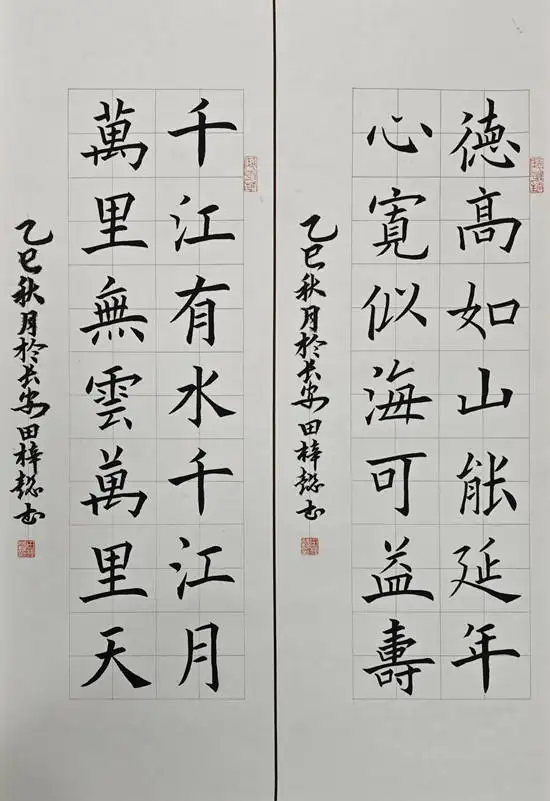 德高如山能延年
心寬似海可益壽
乙巳秋月於长安田梓懿书
千江有水千江月
萬里無雲萬里天
乙巳秋月於长安田梓懿书